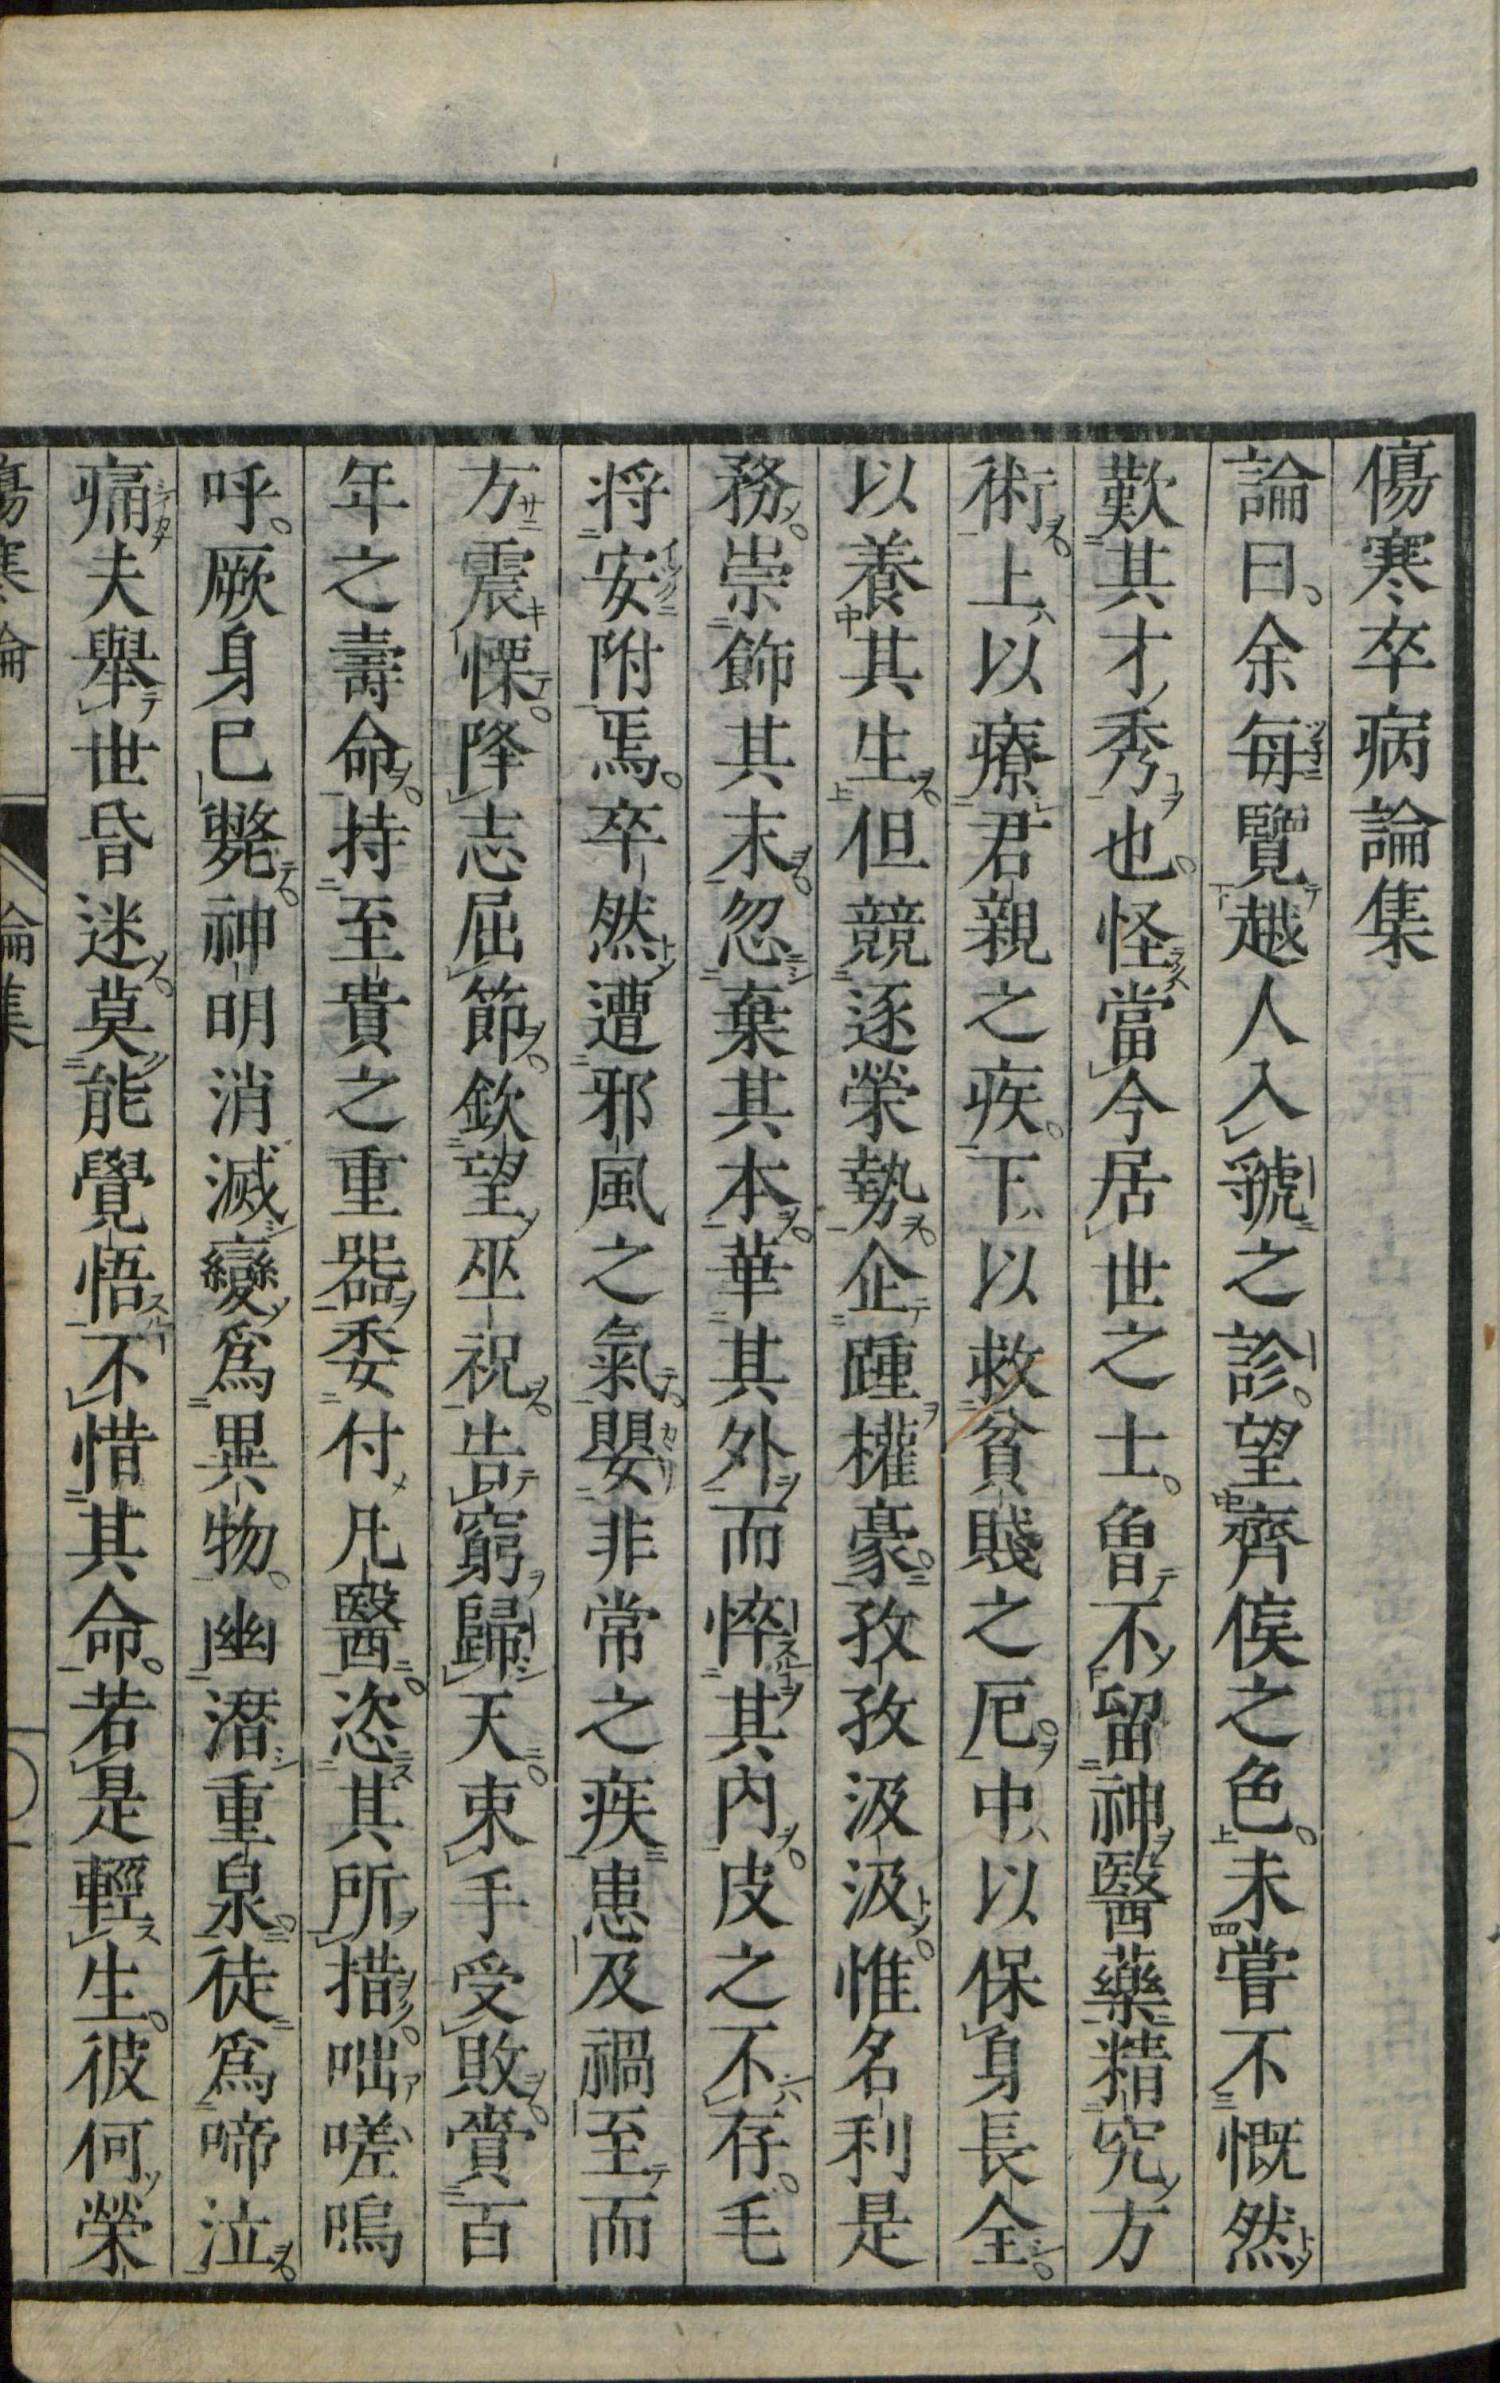 傷寒卒病論集
論曰、余每覽越人入虢之診。望齊侯之色。未嘗不慨然
歎其才秀也。怪當今居世之士。曾不留神醫藥精究方
術。上以療君親之疾。下以救貧賤之厄。中以保身長全。
以養其生。但競逐榮勢。企踵權豪。孜孜汲汲。惟名利是
務。崇飾其末。忽棄其本。華其外而悴其內。皮之不存。毛
将安附焉。卒然遭邪風之氣。嬰非常之疾患及禍至而
方震慄。降志屈節。欽望巫祝。告窮歸天。束手受敗。賷百
年之壽命。持至貴之重器委付凡醫。恣其所措。咄嗟嗚
呼。厥身已斃。神明消滅變爲異物。幽潛重泉。徒爲啼泣。
痛夫舉世昏迷。莫能覺悟不惜其命。若是輕生。彼何榮
傷寒論 論集 〇一